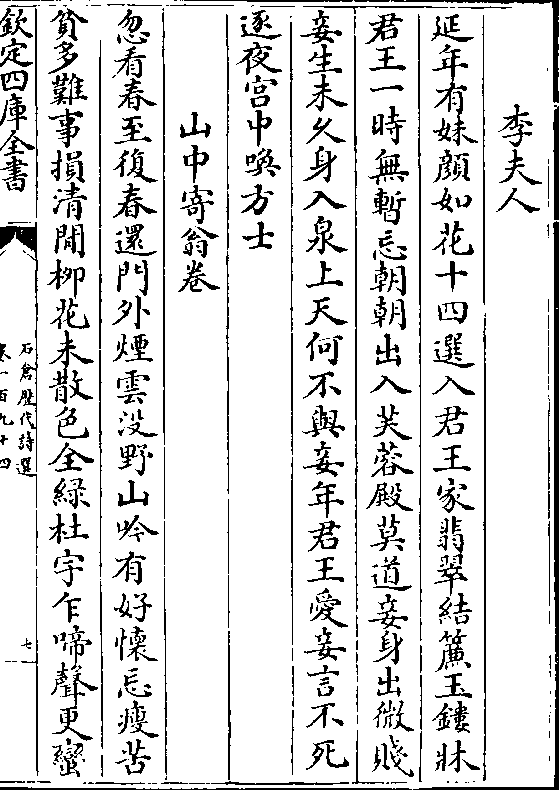 李夫人
延年有妹顔如花十四選入君王家翡翠結簾玉鏤牀
君王一時無暫忘朝朝出入芙蓉殿莫道妾身出微賤
妾生未久身入泉上天何不與妾年君王愛妾言不死
逐夜宫中喚方士
山中寄翁卷
忽看春至復春還門外煙雲没野山吟有好懷忘瘦苦
貧多難事損清閒柳花未散色全緑杜宇乍啼聲更蠻
欽定四庫全書
石倉歷代詩選
卷一百九十四
七